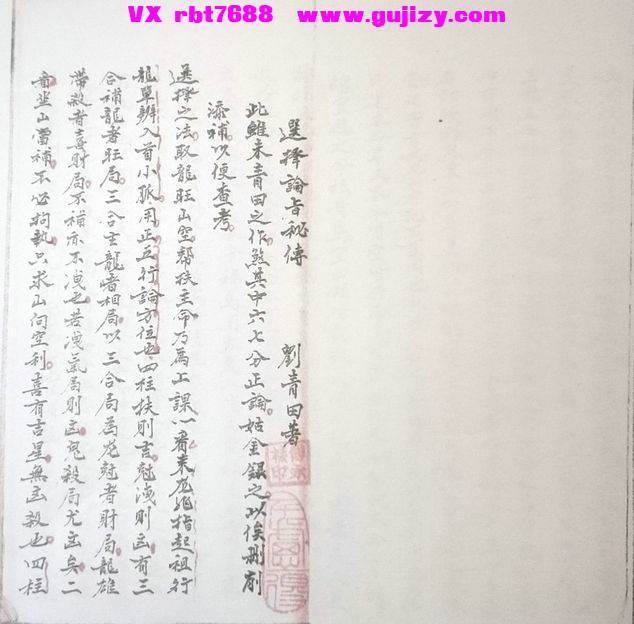 VX rbt7688 www.gujizy.com
選擇論旨秘傳 劉青田著
此雖未青田之作然其中六七分正論姑金錄之以俟刪削
添補以便查考
選擇之法取龍旺山空帮扶主命乃為上課一看來龍非指起祖行
龍單辨入首小脈用正五行論方位也四柱扶則吉尅洩則凶有三
合補龍者旺局三合生龍者相局以三合局為龍尅者財局龍雄
帶殺者喜財局不補亦不洩也若洩氣局則凶鬼殺局尤凶矣二
看坐山當補不必拘執只求山向空利喜有吉星無凶殺也四柱